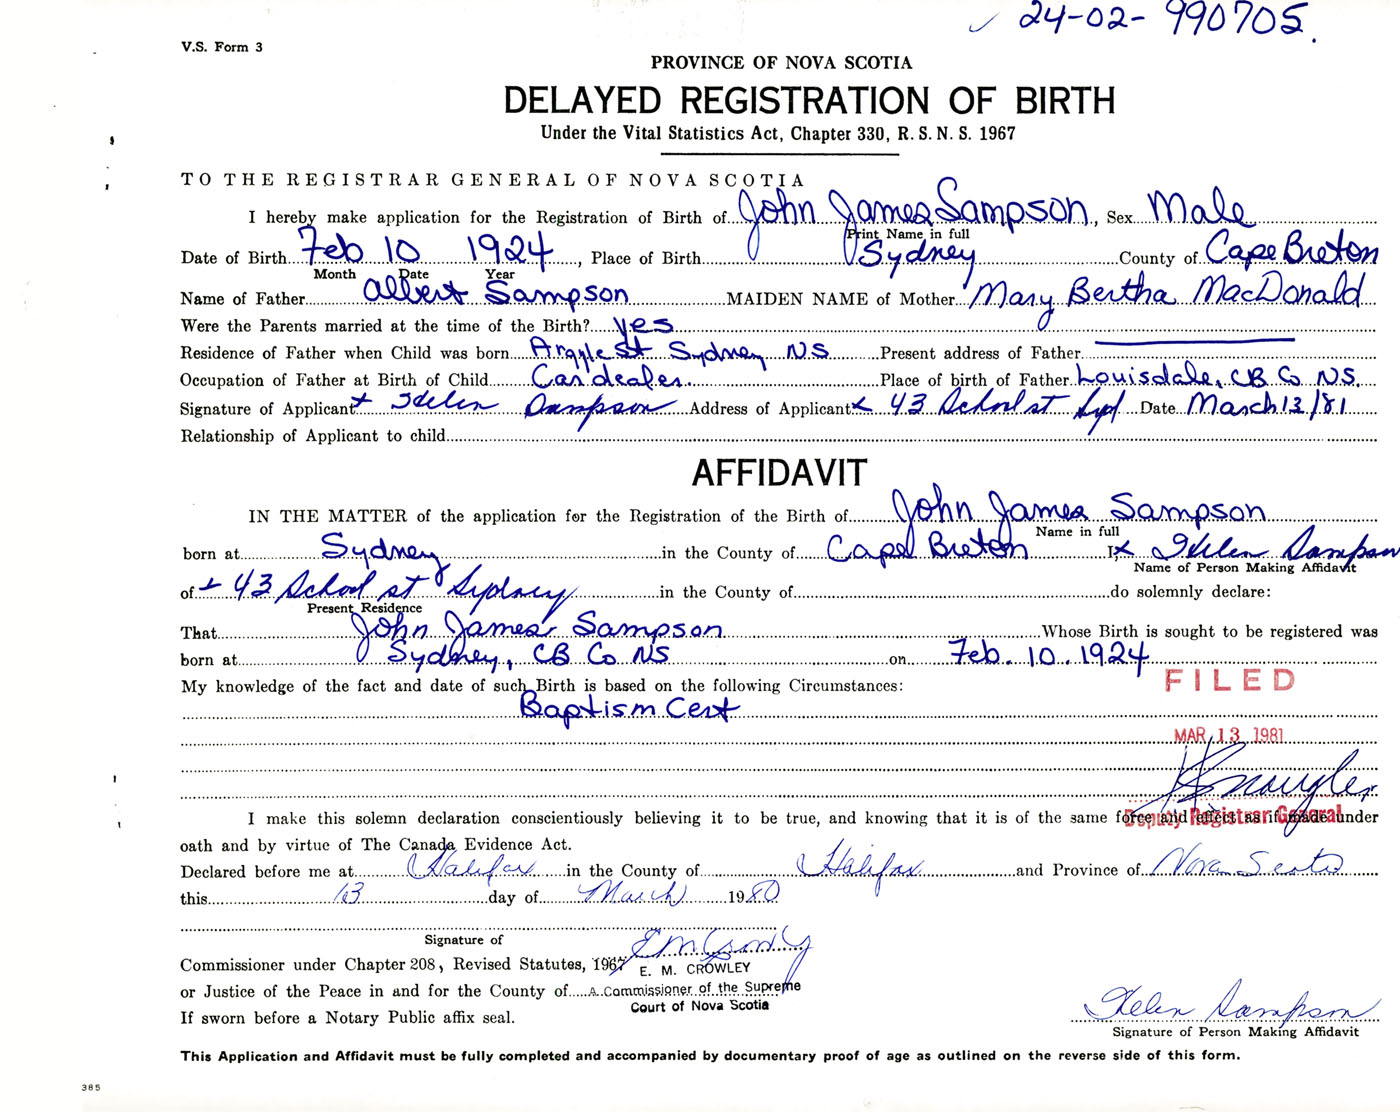 24-02-990705.
V.S. Form 3
PROVINCE OF NOVA SCOTIA
DELAYED REGISTRATION OF BIRTH
Under the Vital Statistics Act, Chapter 330, R.S.N.S. 1967
TO THE REGISTRAR GENERAL OF NOVA SCOTIA
I hereby make application for the Registration of Birth of John James Sampson, Sex Male
Print Name in full
Date of Birth Feb 10 1924, Place of Birth Sydney County of Cape Breton
Month Date Year
Name of Father Albert Sampson MAIDEN NAME of Mother Mary Bertha MacDonald
Were the Parents married at the time of the Birth? yes
Residence of Father when Child was born Argyle St Sydney NS Present address of Father
Occupation of Father at Birth of Child Car dealer. Place of birth of Father Louisdale, CB Co NS.
Signature of Applicant x Helen Sampson Address of Applicant x 43 School st Syd Date March 13/81
Relationship of Applicant to child
AFFIDAVIT
IN THE MATTER of the application for the Registration of the Birth of John James Sampson
Name in full
born at Sydney in the County of Cape Breton I, x Helen Sampson
Name of Person Making Affidavit
of x 43 School st Sydney in the County of do solemnly declare:
Present Residence
That John James Sampson Whose Birth is sought to be registered was
born at Sydney, CB Co NS on Feb. 10. 1924
My knowledge of the fact and date of such Birth is based on the following Circumstances:
FILED
Baptism Cert
MAR 13 1981
Deputy Registrar General
I make this solemn declaration conscientiously believing it to be true, and knowing that it is of the same force and effect as if made under
oath and by virtue of The Canada Evidence Act.
Declared before me at Halifax in the County of Halifax and Province of Nova Scotia
this 13 day of March 1980
Signature of
Commissioner under Chapter 208, Revised Statutes, 1967
E. M. CROWLEY
or Justice of the Peace in and for the County of A Commissioner of the Supreme
Court of Nova Scotia
If sworn before a Notary Public affix seal.
Helen Sampson
Signature of Person Making Affidavit
This Application and Affidavit must be fully completed and accompanied by documentary proof of age as outlined on the reverse side of this form.
385